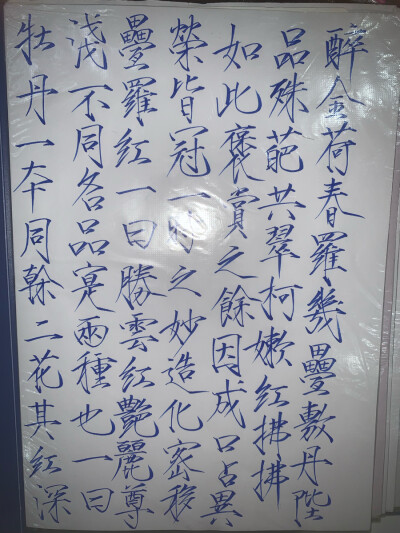 牡丹一夲同榦二花其紅深
淺不同名品寔兩種也一曰
疊羅紅一曰勝雲紅艷麗尊
榮皆冠一時之妙造化密移
如此褒賞之餘因成口占異
品殊葩共翠柯嫩紅拂拂
醉金荷春羅幾疊敷丹陛